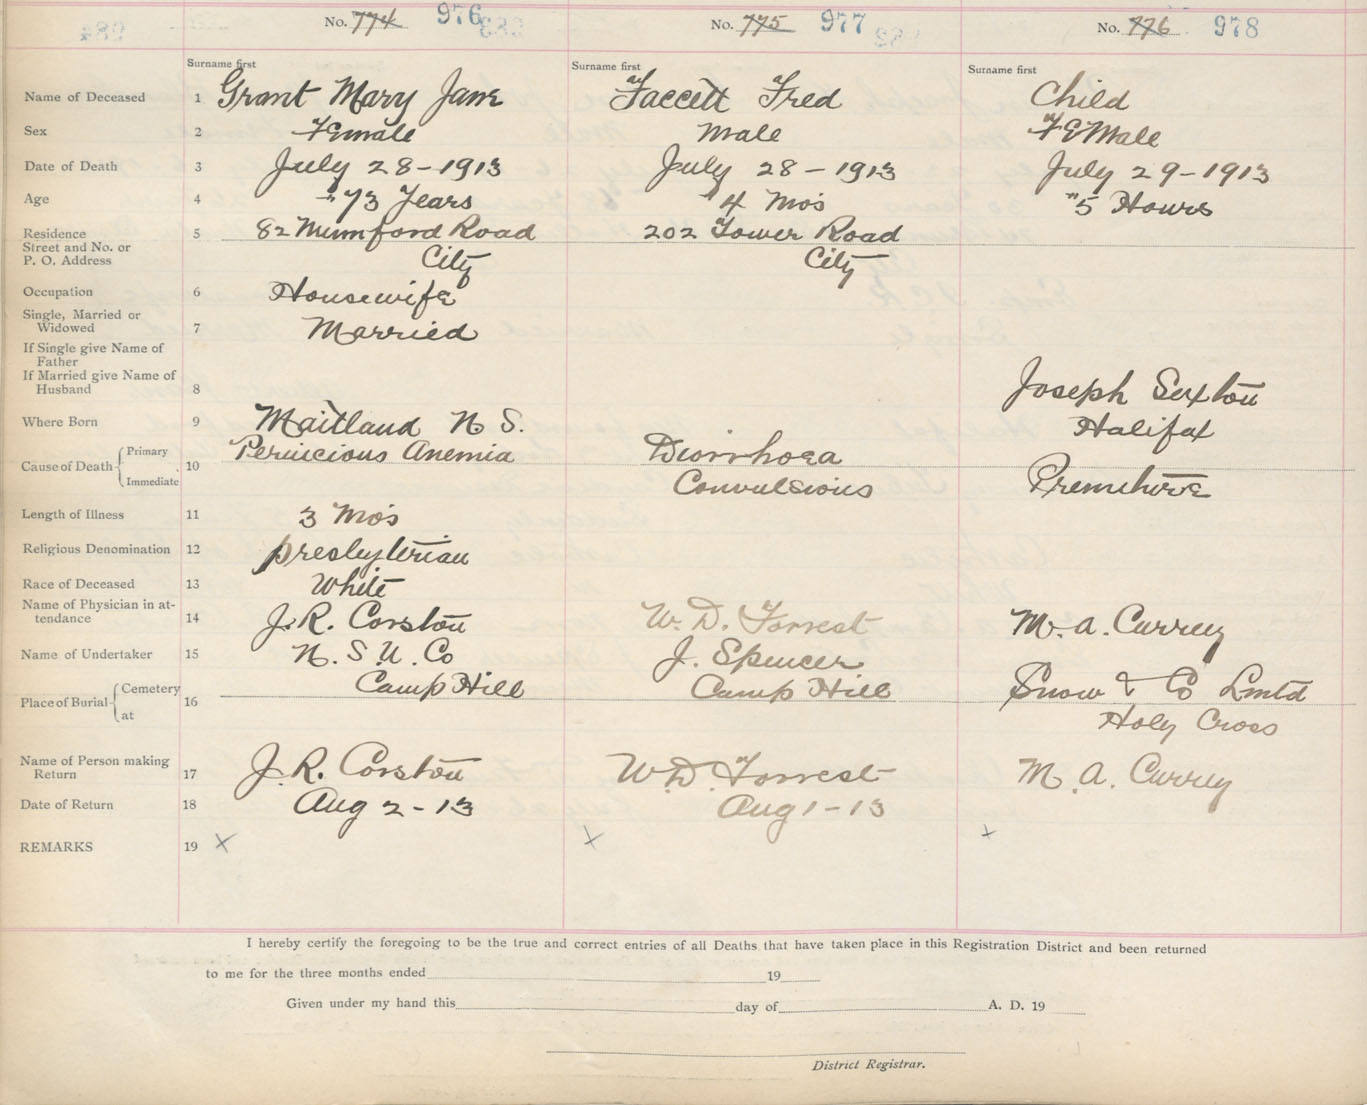 No. 774 976
No. 775 977
No. 776 978
Surname first
Surname first
Surname first
Name of Deceased 1 Grant Mary Jane
Faccett Fred
Child
Sex 2 Female
Male
Female
Date of Death 3 July 28-1913
July 28-1913
July 29-1913
Age 4 73 Years
4 Mo's
5 Hours
Residence 5 82 Mumford Road
202 Tower Road
Street and No. or
P. O. Address
City
City
Occupation 6 Housewife
Single, Married or
Widowed 7 Married
If Single give Name of
Father
If Married give Name of
Husband 8
Joseph Sexton
Where Born 9 Maitland N S.
Halifax
Cause of Death 10
Primary
Immediate
Pernicious Anemia
Diorrhoea
Convulsions
Premature
Length of Illness 11 3 Mo's
Religious Denomination 12 Presbyterian
Race of Deceased 13 White
Name of Physician in at-
tendance 14 J. R. Corston
W. D. Forrest
M. A. Currey
Name of Undertaker 15 N. S. U. Co
J. Spencer
Snow & Co Lmtd
Place of Burial 16
Cemetery
at
Camp Hill
Camp Hill
Holy Cross
Name of Person making
Return 17 J. R. Corston
W. D. Forrest
M. A. Currey
Date of Return 18 Aug 2-13
Aug 1-13
REMARKS 19 x
x
x
I hereby certify the foregoing to be the true and correct entries of all Deaths that have taken place in this Registration District and been returned
to me for the three months ended 19
Given under my hand this day of A. D. 19
District Registrar.